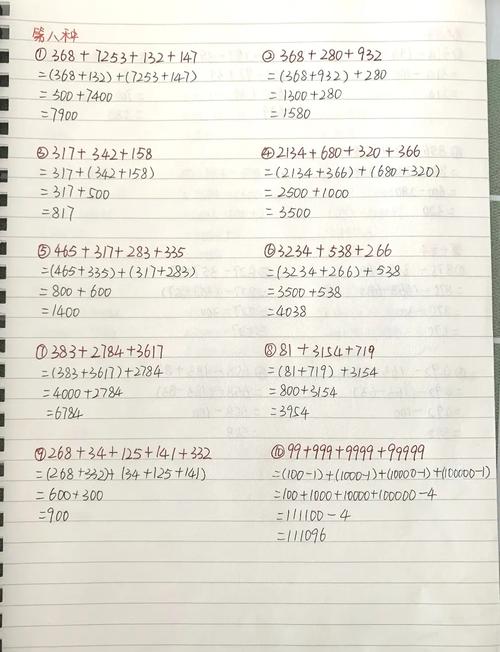 第八种
① 368+7253+132+147
=(368+132)+(7253+147)
=500+7400
=7900
② 368+280+932
=(368+932)+280
=1300+280
=1580
③ 317+342+158
=317+(342+158)
=317+500
=817
④ 2134+680+320+366
=(2134+366)+(680+320)
=2500+1000
=3500
⑤ 465+317+283+335
=(465+335)+(317+283)
=800+600
=1400
⑥ 3234+538+266
=(3234+266)+538
=3500+538
=4038
⑦ 383+2784+3617
=(383+3617)+2784
=4000+2784
=6784
⑧ 81+3154+719
=(81+719)+3154
=800+3154
=3954
⑨ 268+34+125+141+332
=(268+332)+(34+125+141)
=600+300
=900
⑩ 99+999+9999+99999
=(100-1)+(1000-1)+(10000-1)+(100000-1)
=100+1000+10000+100000-4
=111100-4
=111096